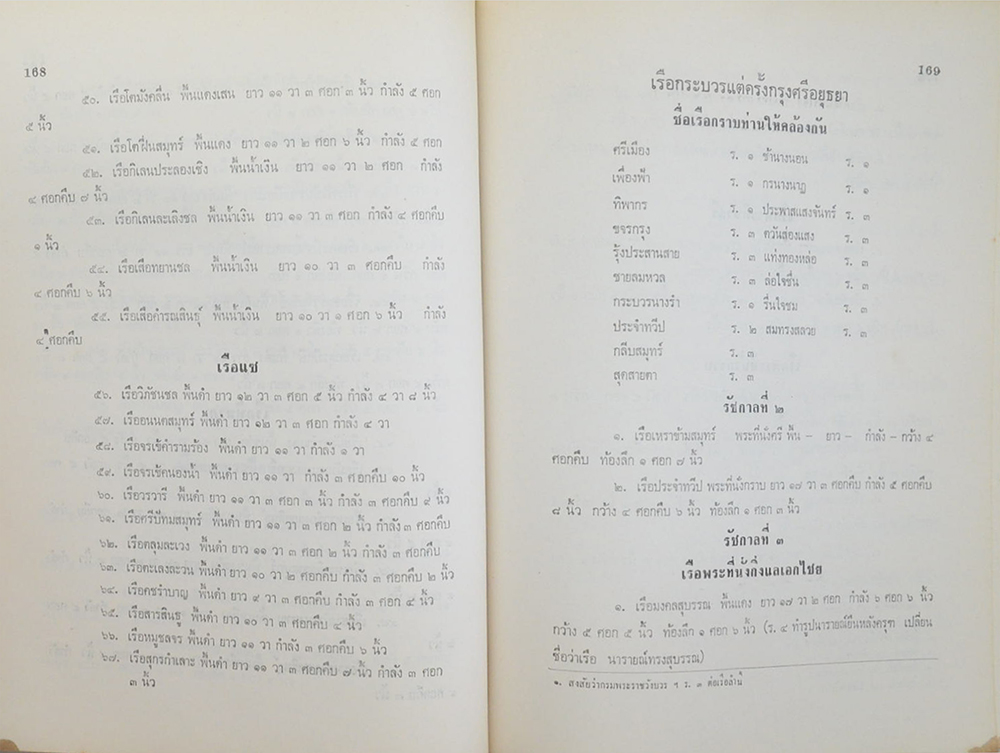 168
๕๐. เรือโตมังคลื่น พื้นแดงเสน ยาว ๑๑ วา ๓ ศอก ๓ นิ้ว กำลัง ๕ ศอก
๕ นิ้ว
๕๑. เรือโตฝืนสมุทร์ พื้นแดง ยาว ๑๑ วา ๒ ศอก ๖ นิ้ว กำลัง ๕ ศอก
๕๒. เรือกิเลนประลองเชิง พื้นน้ำเงิน ยาว ๑๑ วา ๒ ศอก กำลัง
๔ ศอกคืบ ๗ นิ้ว
๕๓. เรือกิเลนละเลิงชล พื้นน้ำเงิน ยาว ๑๑ วา ๓ ศอก กำลัง ๔ ศอกคืบ
๑ นิ้ว
๕๔. เรือเสือทยานชล พื้นน้ำเงิน ยาว ๑๐ วา ๓ ศอกคืบ กำลัง
๔ ศอกคืบ ๖ นิ้ว
๕๕. เรือเสือคำรณสินธุ์ พื้นน้ำเงิน ยาว ๑๐ วา ๑ ศอก ๖ นิ้ว กำลัง
๔ ศอกคืบ
เรือแซ
๕๖. เรือวิภัชนชล พื้นดำ ยาว ๑๒ วา ๓ ศอก ๕ นิ้ว กำลัง ๔ วา ๘ นิ้ว
๕๗. เรืออนนตสมุทร์ พื้นดำ ยาว ๑๒ วา ๓ ศอก กำลัง ๔ วา
๕๘. เรือจรเข้คำรามร้อง พื้นดำ ยาว ๑๑ วา กำลัง ๑ วา
๕๙. เรือจรเข้คนองน้ำ พื้นดำ ยาว ๑๑ วา กำลัง ๓ ศอกคืบ ๑๐ นิ้ว
๖๐. เรือวรวารี พื้นดำ ยาว ๑๑ วา ๓ ศอก ๓ นิ้ว กำลัง ๓ ศอกคืบ ๙ นิ้ว
๖๑. เรือศรีปัทมสมุทร์ พื้นดำ ยาว ๑๑ วา ๓ ศอก ๒ นิ้ว กำลัง ๓ ศอกคืบ
๖๒. เรือตลุมละเวง พื้นดำ ยาว ๑๑ วา ๓ ศอก ๒ นิ้ว กำลัง ๓ ศอกคืบ
๖๓. เรือตะเลงละวน พื้นดำ ยาว ๑๐ วา ๒ ศอกคืบ กำลัง ๓ ศอกคืบ ๒ นิ้ว
๖๔. เรือคชรำบาญ พื้นดำ ยาว ๙ วา ๓ ศอกคืบ กำลัง ๓ ศอก ๔ นิ้ว
๖๕. เรือสารสินธู พื้นดำ ยาว ๑๐ วา ๓ ศอกคืบ ๔ นิ้ว
๖๖. เรือหมูชลจร พื้นดำ ยาว ๑๑ วา กำลัง ๓ ศอกคืบ ๖ นิ้ว
๖๗. เรือสุกรกำเลาะ พื้นดำ ยาว ๑๑ วา ๓ ศอกคืบ ๗ นิ้ว กำลัง ๓ ศอก
๓ นิ้ว
169
เรือกระบวรแต่ครั้งกรุงศรีอยุธยา
ชื่อเรือกราบท่านให้คล้องกัน
ศรีเมือง ร. ๑ ช้านางนอน ร. ๑
เฟื่องฟ้า ร. ๑ กรนางนาฎ ร. ๑
ทิพากร ร. ๑ ประพาสแสงจันทร์ ร. ๓
ขจรกรุง ร. ๓ ควันส่องแสง ร. ๓
รุ้งประสานสาย ร. ๓ แท่งทองหล่อ ร. ๓
ชายลมหวล ร. ๓ ล่อใจชื่น ร. ๓
กระบวนนางรำ ร. ๑ รื่นใจชม ร. ๓
ประจำทวีป ร. ๒ สมทรงสลวย ร. ๓
กลีบสมุทร์ ร. ๓
สุดสายตา ร. ๓
รัชกาลที่ ๒
๑. เรือเหราข้ามสมุทร์ พระที่นั่งศรี พื้น – ยาว – กำลัง – กว้าง ๔
ศอกคืบ ท้องลึก ๑ ศอก ๗ นิ้ว
๒. เรือประจำทวีป พระที่นั่งกราบ ยาว ๑๗ วา ๓ ศอกคืบ กำลัง ๕ ศอกคืบ
๘ นิ้ว กว้าง ๔ ศอกคืบ ๖ นิ้ว ท้องลึก ๑ ศอก ๓ นิ้ว
รัชกาลที่ ๓
เรือพระที่นั่งกิ่งแลเอกไชย
๑. เรือมงคลสุบรรณ พื้นแดง ยาว ๑๗ วา ๒ ศอก กำลัง ๖ ศอก ๖ นิ้ว
กว้าง ๕ ศอก ๕ นิ้ว ท้องลึก ๑ ศอก ๖ นิ้ว (ร. ๔ ทำรูปนารายณ์ยืนหลังครุฑ เปลี่ยน
ชื่อว่าเรือ นารายณ์ทรงสุบรรณ)
๑. สงสัยว่ากรมพระราชวังบวร ฯ ร. ๓ ต่อเรือลำนี้